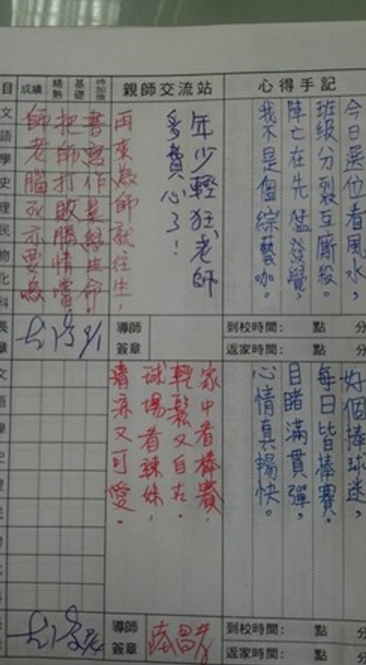 心得手記
今日選位看風水，
班級分裂互廝殺。
陣亡在先猛發覺，
我不是個綜藝咖。
到校時間： 點 分
返家時間： 點 分
親師交流站
年少輕狂，老師
多費心了！
再來為師就往生，
書寫作業
把師打敗勝情
師老腦死亦要
導師
簽章
成績
精熟
基礎
待加強
目
文
語
學
史
理
民
物
化
科
長
章
好個棒球迷，
每日皆棒賽。
目睹滿貫彈，
心情真暢快。
到校時間： 點 分
返家時間： 點
家中看棒賽，
輕鬆又自在。
球場看辣妹，
清涼又可愛。
導師
簽章